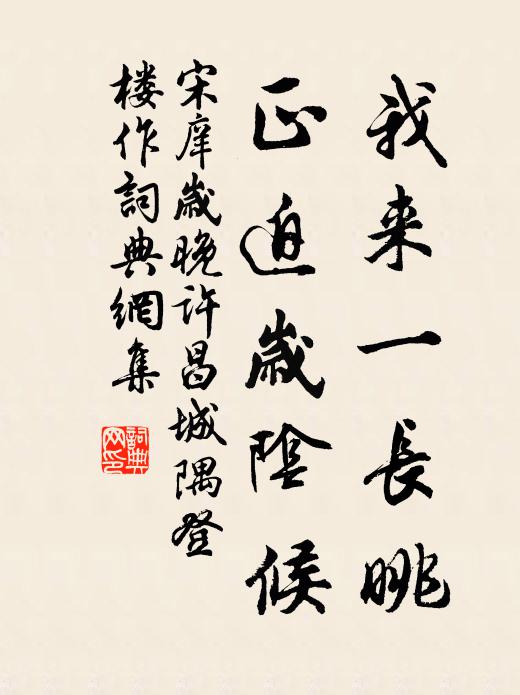 我来一長眺
正迫歲陰候
宋庠歲晚許昌城隅登
楼作詞典網集
詞典
网印